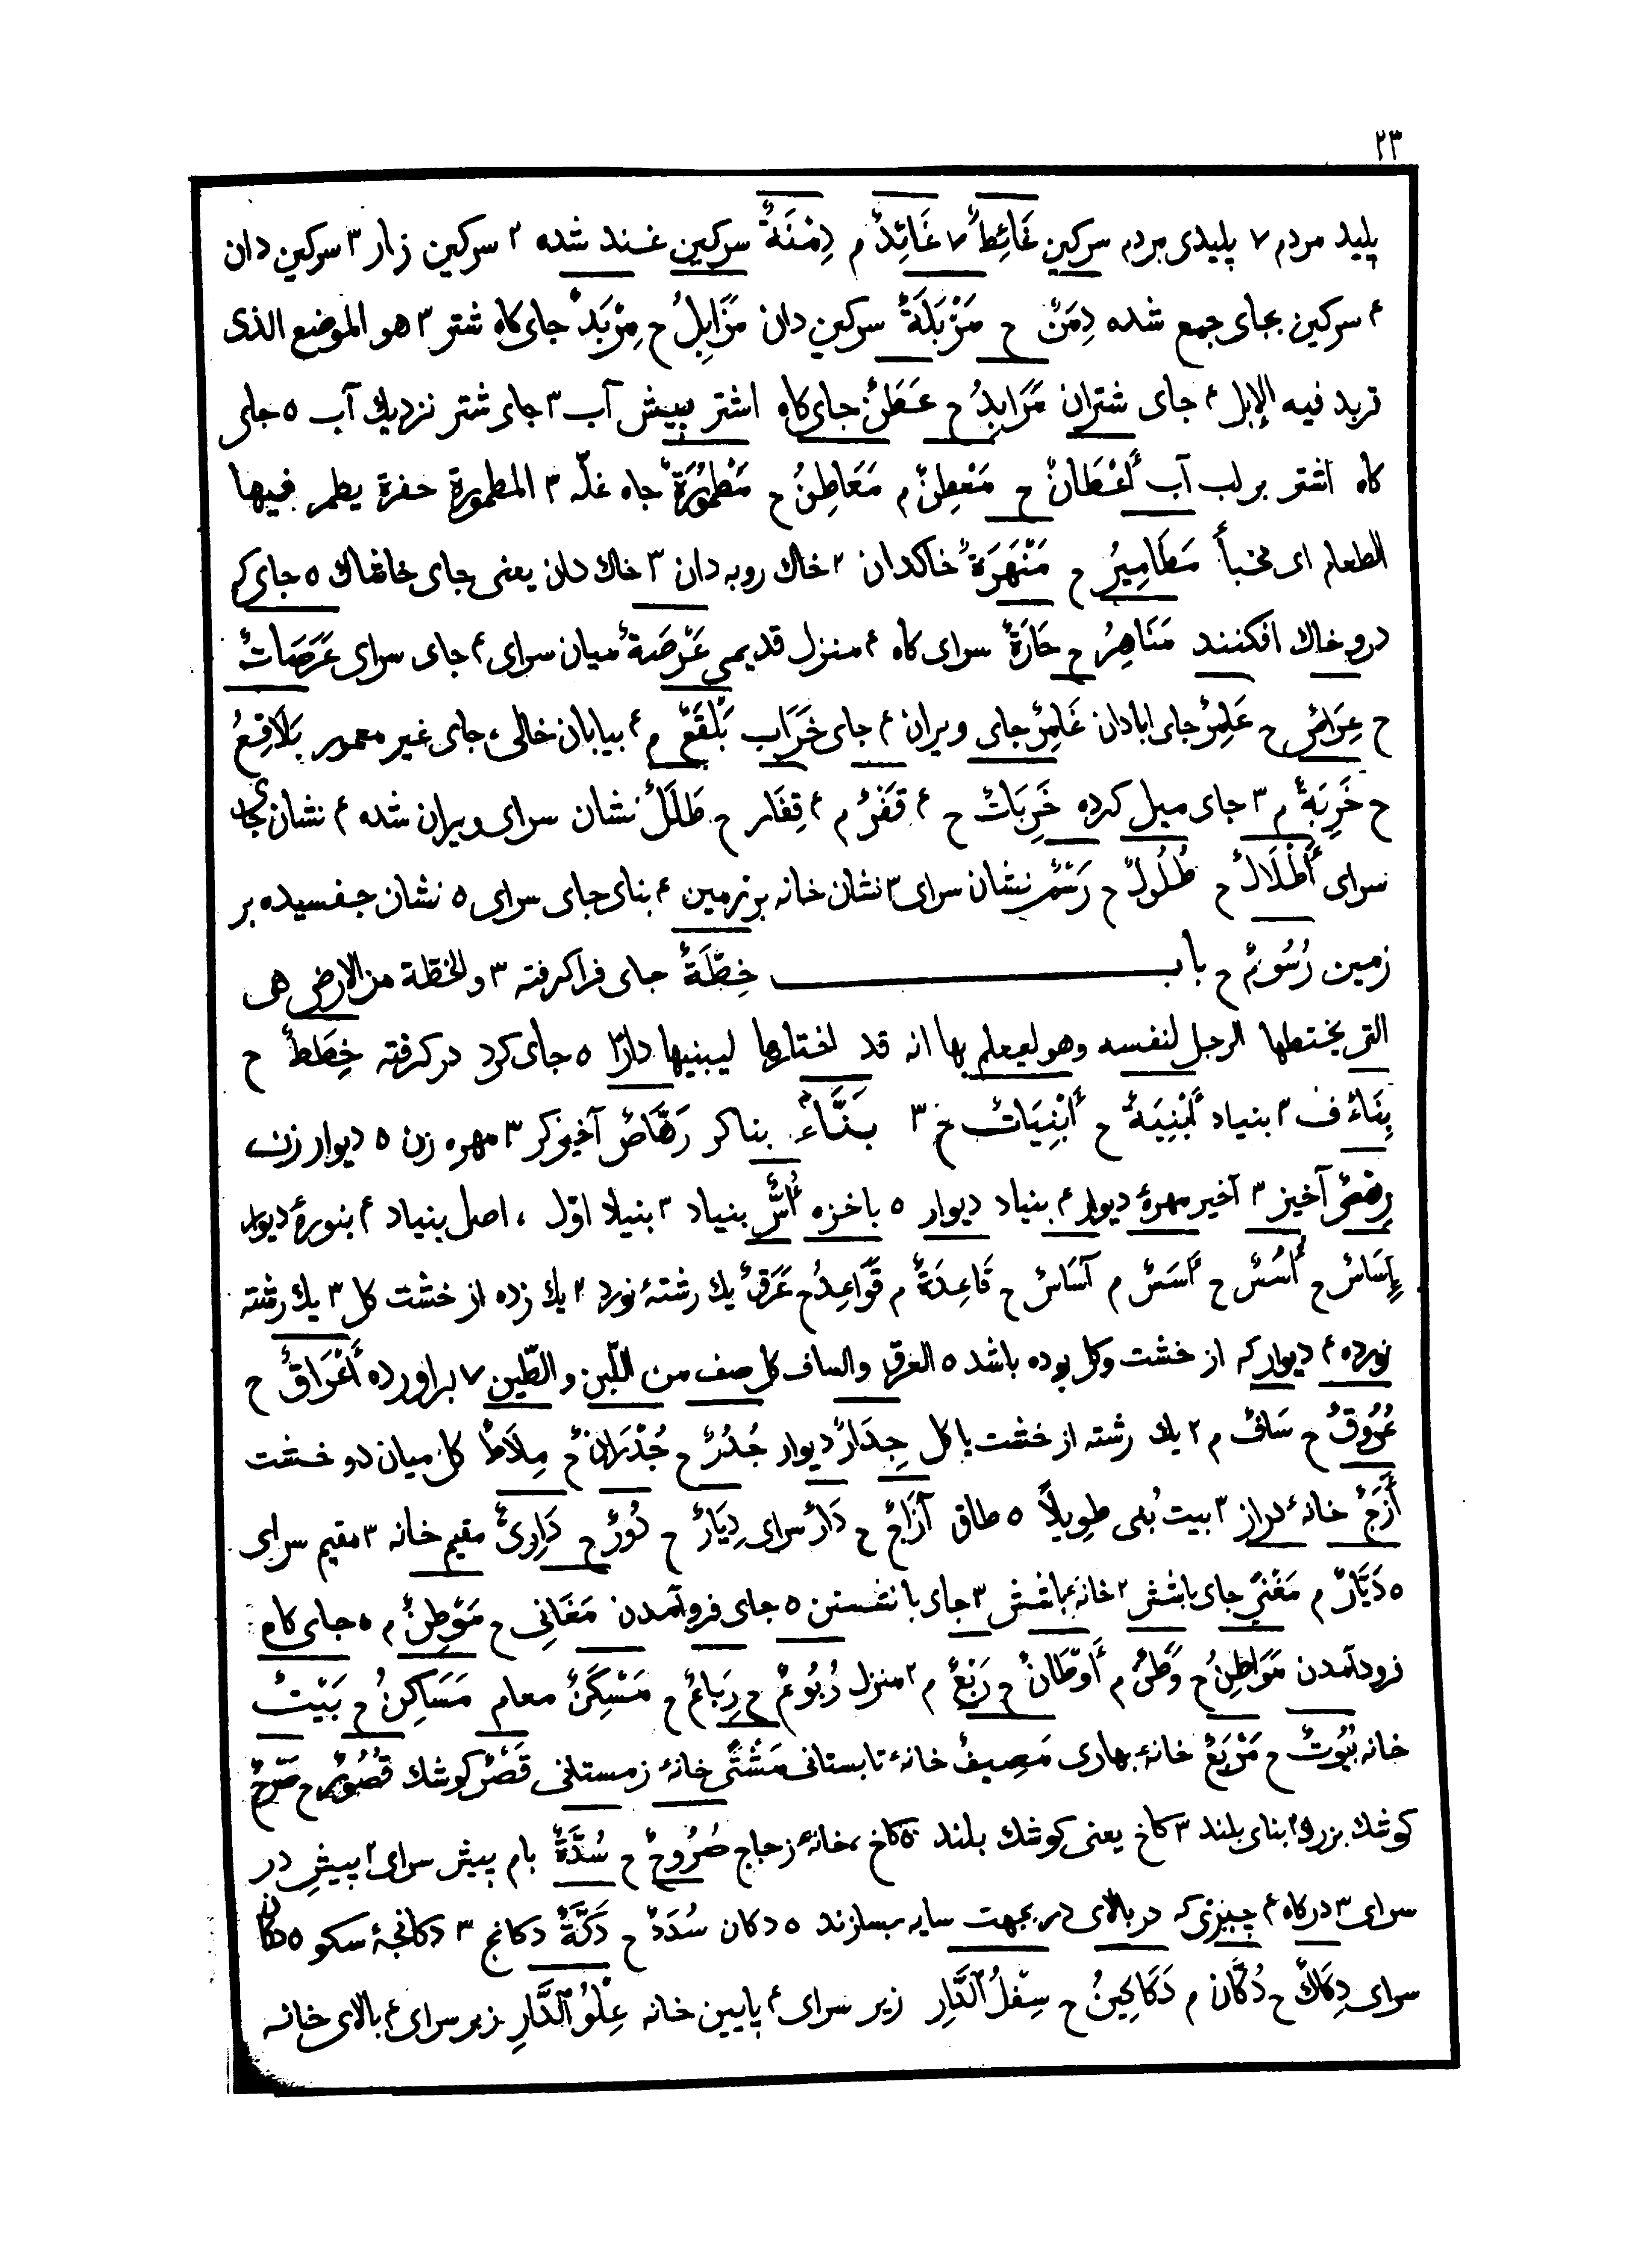 ٢٣
پلید مردم ٧ پلیدی مردم سرکین غَائِطٌ ٧ غَائِدٌ م دِمْنَةٌ سرکین غند شده ٢ سرکین زار ٣ سرکین دان
۴ سرکین بجای جمع شده دِمَنٌ ح مَزْبَلَةٌ سرکین دان مَزَابِلُ ح مِرْبَدٌ جای کاه شتر ٣ هو الموضع الذی
تربد فیه الإبل ۴ جای شتران مَرَابِدُ ح عَطَنٌ جای کاه اشتر بپیش آب ٣ جای شتر نزدیك آب ٥ جای
کاه اشتر بر لب آب أَعْطَانٌ ح مَعْطِنٌ م مَعَاطِنُ ح مَطْمُورَةٌ جاه غلّه ٣ المطمورة حفرة یطمر فیها
الطعام ای یخبأ مَطَامِیرُ ح مَنْهَرَةٌ خاکدان ٢ خاك روبه دان ٣ خاك دان یعنی جای خاشاك ٥ جای که
درو خاك افکنند مَنَاهِرُ ح حَارَةٌ سرای کاه ۴ منزل قدیمی عَرْصَةٌ میان سرای ۴ جای سرای عَرَصَاتٌ
ح عِرَاصٌ ح عَامِرٌ جای ابادان غَامِرٌ جای ویران ۴ جای خَرَاب بَلْقَعٌ م ۴ بیابان خالی، جای غیر معمور بَلَاقِعُ
ح خَرِبَةٌ م ٣ جای میل کرده خَرِبَاتٌ ح ۴ قَفْرٌ م ۴ قِفَار ح طَلَلٌ نشان سرای ویران شده ۴ نشان بجای
سرای أَطْلَالٌ ح طُلُولٌ ح رَسْمٌ نشان سرای ٣ نشان خانه بر زمین ۴ بنای جای سرای ٥ نشان جفسیده بر
زمین رُسُومٌ ح باب خِطَّةٌ جای فرا کرفته ٣ والخطّة من الارض هی
التی یختطها الرجل لنفسه وهو لیعلم بها انه قد اختارها لیبنیها دارًا ٥ جای کرد در کرفته خِطَطٌ ح
بِنَاءٌ ف ٢ بنیاد أَبْنِیَةٌ ح أَبْنِیَاتٌ خ ٣ بَنَّاءٌ بنا کر رَهَّاصٌ آخیز کر ٣ مهره زن ٥ دیوار زن
رِهْصٌ آخیز ٣ آخیر مهرهٔ دیوار ۴ بنیاد دیوار ٥ باخزه أُسٌّ بنیاد ٣ بنیاد اوّل ، اصل بنیاد ۴ بنورهٔ دیوار
إِسَاسٌ ح أُسُسٌ ح أَسَسٌ م آسَاسٌ ح قَاعِدَةٌ م قَوَاعِدُ ح عَرَقٌ یك رشتهٔ نورد ٢ یك زده از خشت کل ٣ یك رشته
نورده ۴ دیوار که از خشت وکل بوده باشد ٥ العرق والساف کل صف من اللّبن و الطّین ٧ براورده أَعْرَاقٌ ح
عُرُوقٌ ح سَافٌ م ٢ یك رشته از خشت با کل جِدَارٌ دیوار جُدُرٌ ح جُدْرَانٌ ح مِلَاطٌ کل میان دو خشت
أَزَجٌ خانهٔ دراز ٣ بیت بُنی طویلاً ٥ طاق آزَاجٌ ح دَارٌ سرای دِیَارٌ ح دُورٌ ح دَارِیٌّ مقیم خانه ٣ مقیم سرای
٥ دَیَّارٌ م مَغْنًی جای باشش ٢ خانهٔ باشش ٣ جای با نشستن ٥ جای فرو آمدن مَغَانِی ح مَوْطِنٌ م ٥ جای کاه
فرود آمدن مَوَاطِنُ ح وَطَنٌ م أَوْطَانٌ ح رَبْعٌ م ٢ منزل رُبُوعٌ ح رِبَاعٌ ح مَسْكَنٌ معام مَسَاكِنُ ح بَیْتٌ
خانه بُیُوتٌ ح مَرْبَعٌ خانهٔ بهاری مَصِیفٌ خانهٔ تابستانی مَشْتًی خانهٔ زمستانی قَصْرٌ کوشك قُصُورٌ ح صَرْحٌ
کوشك بزرك ٢ بنای بلند ٣ کاخ یعنی کوشك بلند ٥ کاخ، خانهٔ زجاج صُرُوحٌ ح سُدَّةٌ بام پیش سرای ٢ پیشِ در
سرای ٣ درکاه ۴ چیزی که در بالای در بجهت سایه بسازند ٥ دکان سُدَدٌ ح دَكَّةٌ دکانج ٣ دکانجهٔ سکو ٥ دکان
سرای دِكَاكٌ ح دُكَّان م دَكَاكِینُ ح سِفْلُ الدَّارِ زیر سرای ۴ پایین خانه عِلْوُ الدَّارِ زبر سرای ۴ بالای خانه